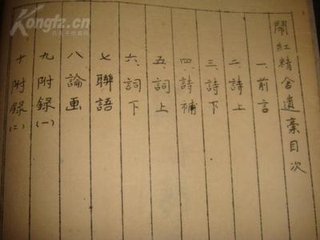 鬧紅精舍遺稾目次
一、前言
二、詩上
三、詩下
四、詩補
五、詞上
六、詞下
七、聯語
八、論画
九、附錄(一)
十、附錄(二)
Kongfz.cn